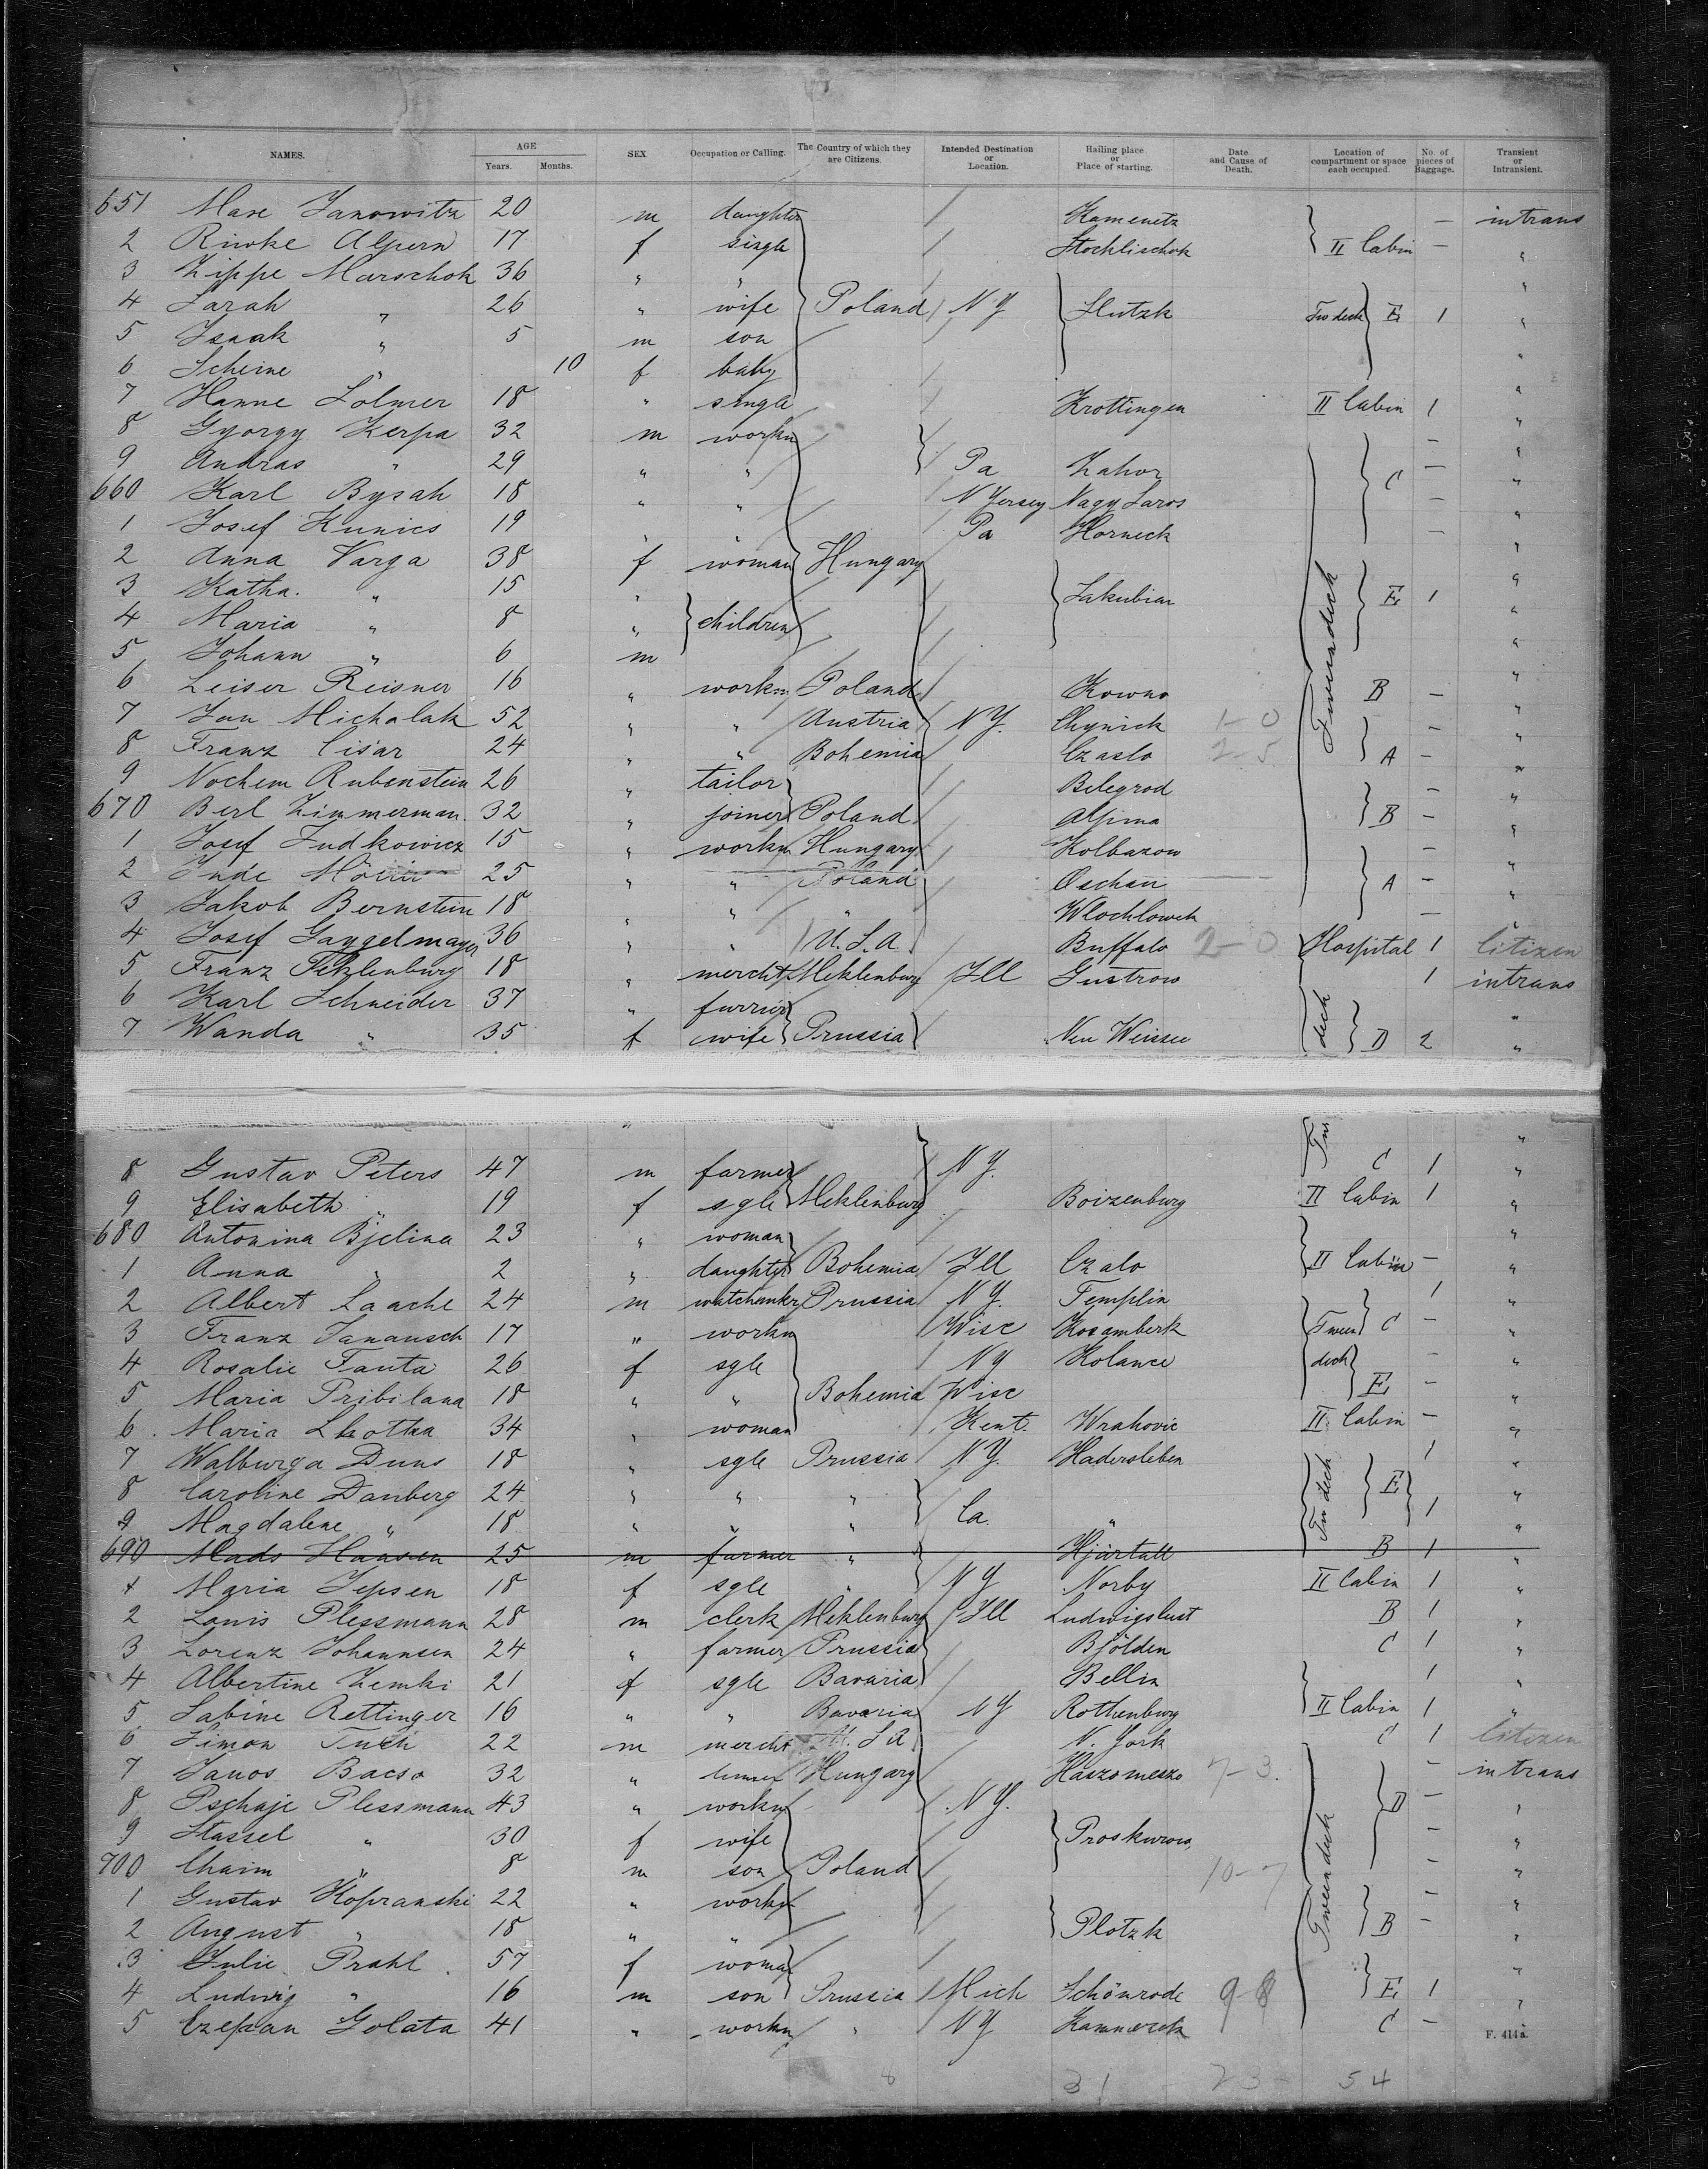 NAMES. AGE Years. Months. SEX Occupation or Calling. The Country of which they are Citizens. Intended Destination or Location. Hailing place or Place of starting. Date and Cause of Death. Location of compartment or space each occupied. No. of pieces of Baggage. Transient or Intransient.
651 Max Janowitz 20 m daughter Kamenetz — intrans
2 Riwke Alpern 17 f single Stochlischok II Cabin — "
3 Zippe Marschok 36 " " "
4 Sarah " 26 " wife Poland N Y Slutzk Tw deck E 1 "
5 Isaak " 5 m son "
6 Scheine " 10 f baby "
7 Hanne Solmer 18 " single Krottingen II Cabin 1 "
8 Gyorgy Kerpa 32 m workm — "
9 Andras " 29 " " Pa Zahor C — "
660 Karl Bysah 18 " " N Jersey Nagy Saros — "
1 Josef Kunics 19 " " Pa Horneck — "
2 Anna Varga 38 f woman Hungary "
3 Katha. " 15 " Jakubian E 1 "
4 Maria " 8 " children Tweendeck "
5 Johann " 6 m "
6 Leiser Reisner 16 " workm Poland Kowno B — "
7 Jan Michalak 52 " " Austria N Y. Chynick 1–0 — "
8 Franz Cisar 24 " " Bohemia Czaslo 2–5 A — "
9 Nochem Rubenstein 26 " tailor Belegrod — "
670 Berl Zimmerman. 32 " joiner Poland Alfima B — "
1 Josef Judkowicz 15 " workm Hungary Kolbazow — "
2 Inde 25 " " Poland Oschan A — "
3 Jakob Bernstein 18 " " " Wlochlowek — "
4 Josef Gaygelmayer 36 " " U. S. A. Buffalo 2–0 Hospital 1 Citizen
5 Franz Fitzlenburg 18 " mercht Meklenburg Ill Gustrow 1 intrans
6 Karl Schneider 37 " furrier deck "
7 Wanda " 35 f wife Prussia Neu Weissee D 2 "
" Tw "
8 Gustav Peters 47 m farmer N Y. C 1 "
9 Elisabeth " 19 f sgle Meklenburg Boizenburg II Cabin 1 "
680 Antonina Bjelina 23 " woman "
1 Anna " 2 " daughter Bohemia Ill Czalo II Cabin — "
2 Albert Laache 24 m watchmkr Prussia N Y. Templin 1 "
3 Franz Janausch 17 " workm Wisc Kosamberk Tween C — "
4 Rosalie Fanta 26 f sgle N Y Kolance deck — "
5 Maria Pribilana 18 " " Bohemia Wisc E — "
6 Maria Lhotka 34 " woman Kent. Wrahovic II Cabin — "
7 Walburga Duus 18 " sgle Prussia N Y. Hadersleben 1 "
8 Caroline Dauberg 24 " " " Tw deck E "
9 Magdalene " 18 " " " Ca. " 1 "
690 Mads Hansen 25 m farmer " Hjartatt B 1 "
1 Maria Jepsen 18 f sgle " N Y Norby II Cabin 1 "
2 Louis Plessmann 28 m clerk Meklenburg Ill Ludwigslust B 1 "
3 Lorenz Johannsen 24 " farmer Prussia Bjölden C 1 "
4 Albertine Zemki 21 f sgle Bavaria Bellin 1 "
5 Sabine Rettinger 16 " " Bavaria N Y Rothenburg II Cabin 1 "
6 Simon Tuch 22 m mercht U. S A N. York C 1 Citizen
7 Janos Bacso 32 " Hungary Haszomeszo 7–3. — intrans
8 Pschaje Plessmann 43 " workm N Y. D — "
9 Stassel " 30 f wife Proskurow, — "
700 Chaim " 8 m son Poland 10–7 — "
1 Gustav Kopranski 22 " workm Tweendeck — "
2 August " 18 " " Plotzk B — "
3 Julie Prahl 57 f woman "
4 Ludwig " 16 m son Prussia Mich Schönrode 9–8 E 1 "
5 Czepan Golata 41 " workm " N Y Kammereck C — "
F. 414a.
8 31 23 54